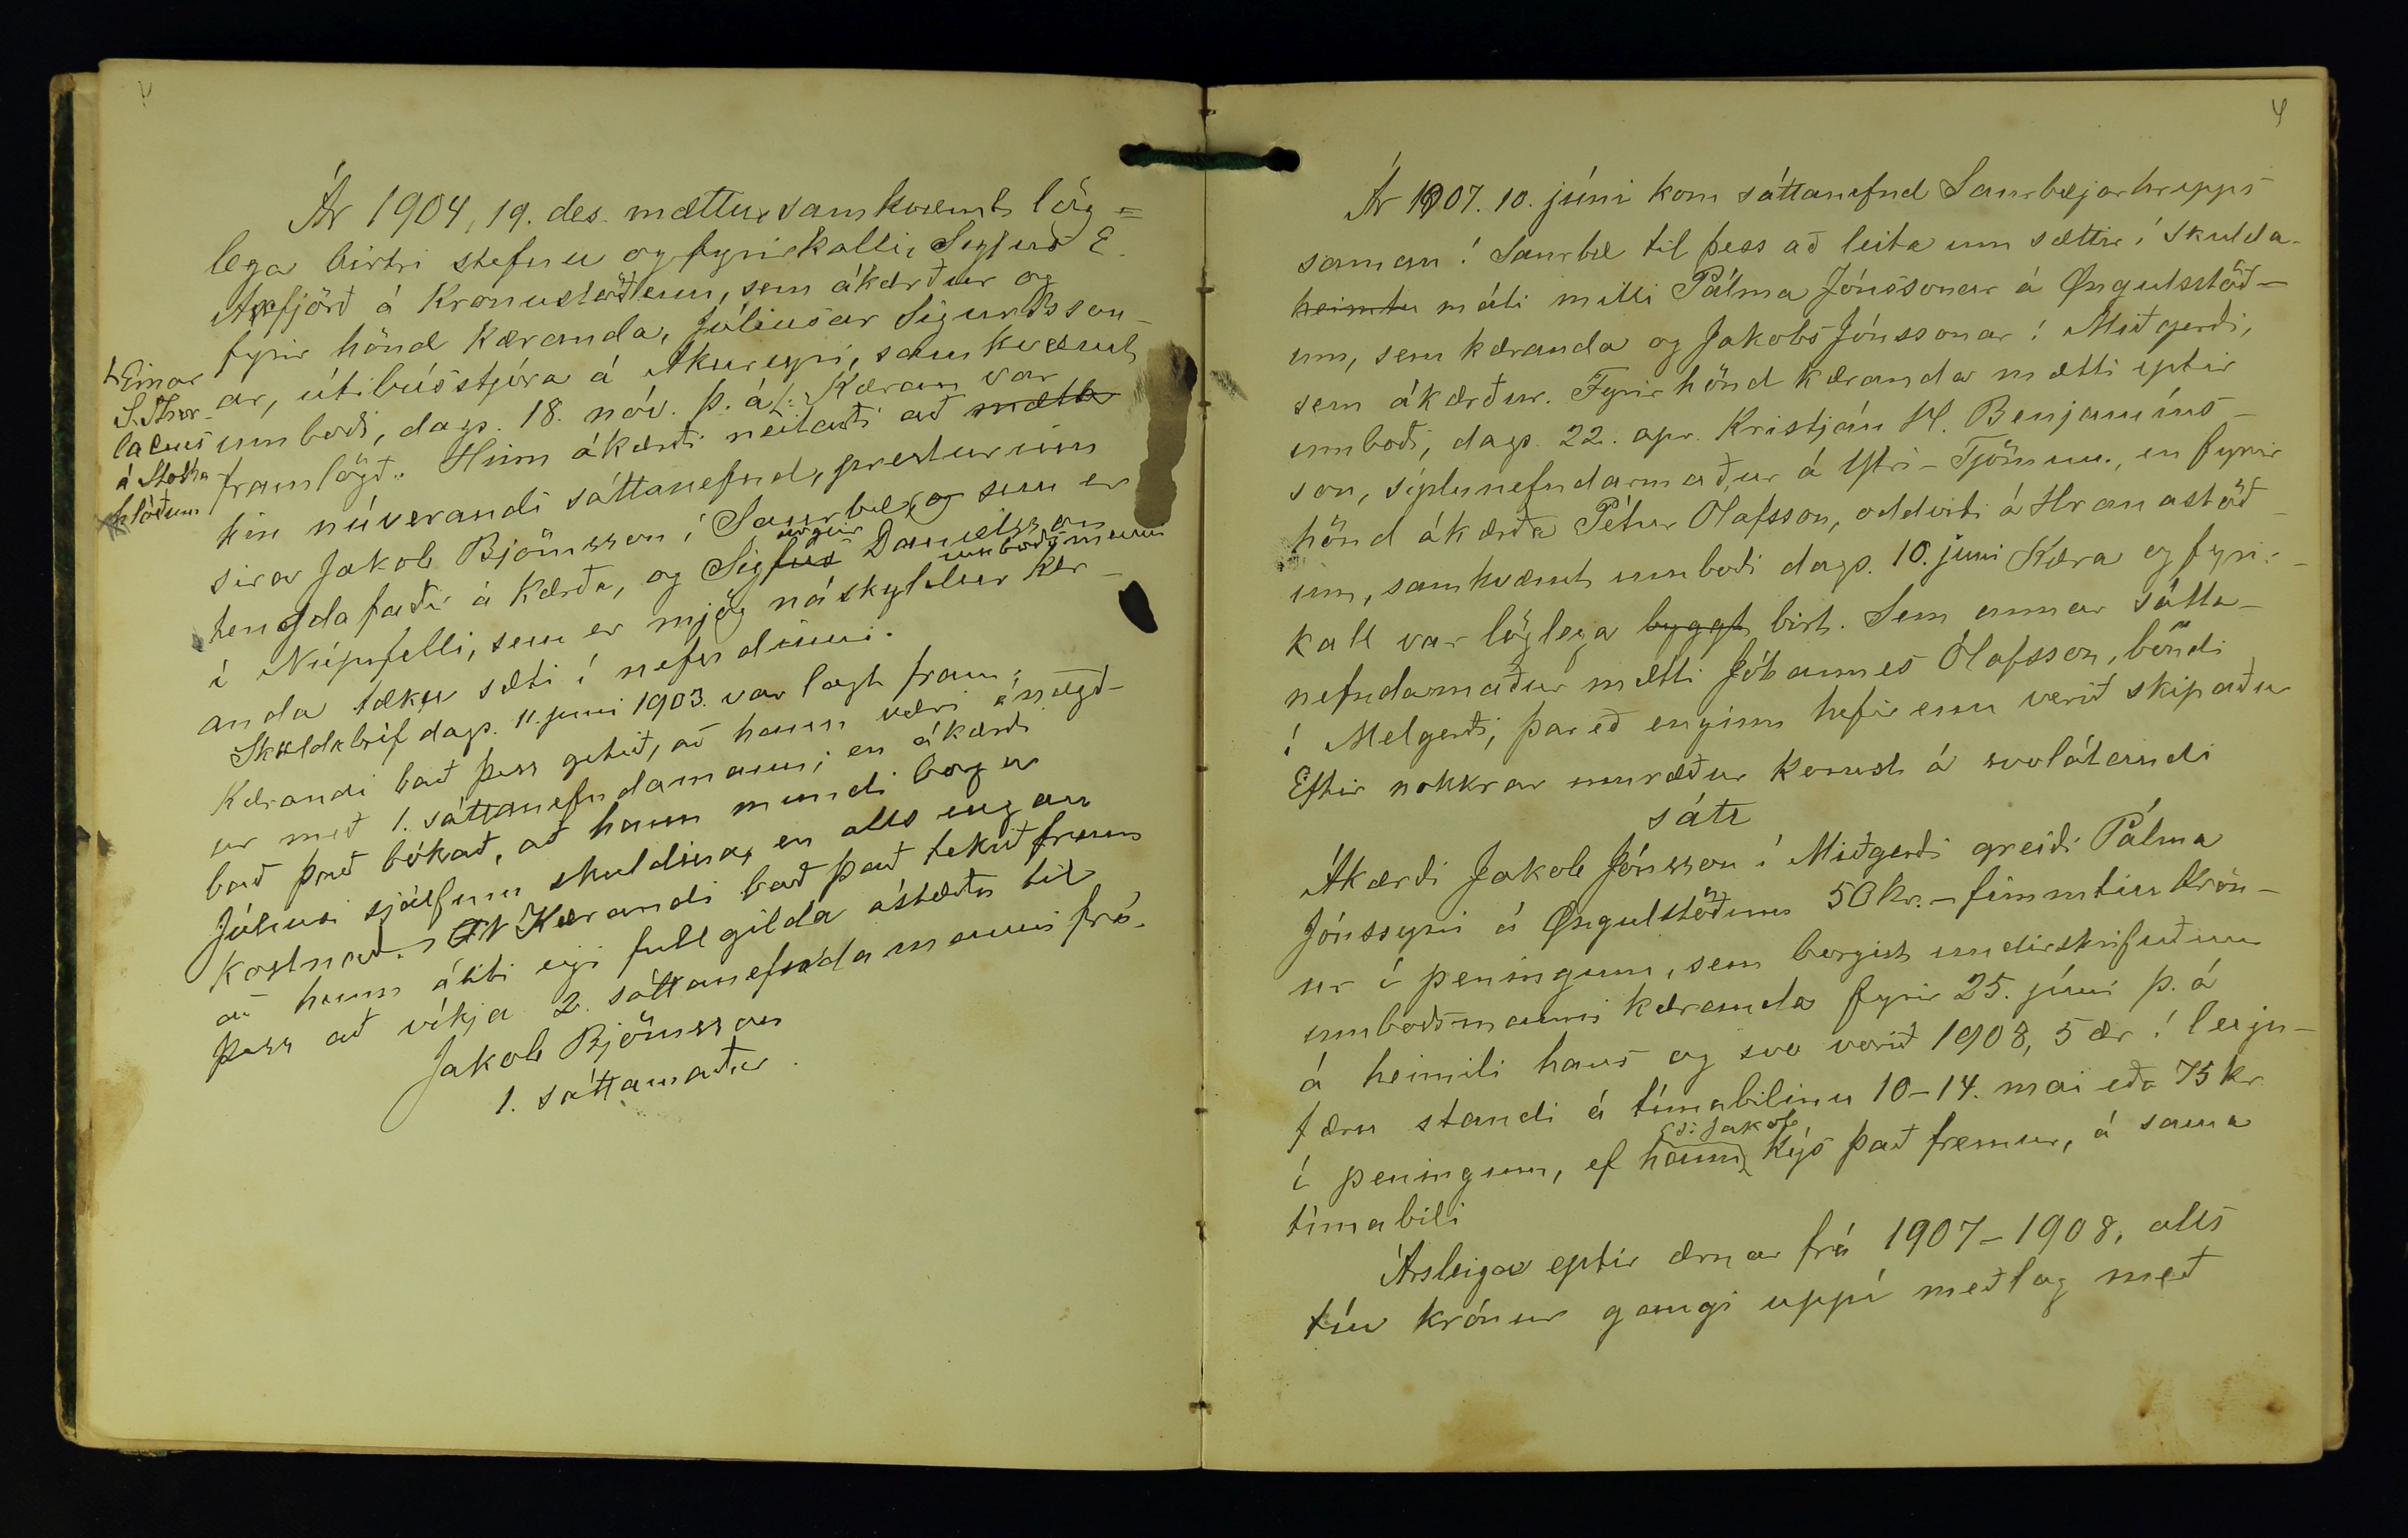 Ár 1904, 19. des. mættu, samkvæmt lög=
lega birtri stefnu og fyrirkalli, Sigfús E.
Axfjörð á Kronustöðum, sem ákærður og
fyrir hönd kæranda, Júliusar Sigurðsson-
ar, útibússtjóra á Akureyri, samkvæmt
umboði, dags. 18. nóv. þ. á /: Kæran var
framlögð. Hinn ákærði neitaði að mæta
hin núverandi sáttanefnd, presturinn
sira Jakob Björnsson í Saurbæ, og sem er
tengdafaðir ákærða, og Sigfús Danielsson
urgeir
í Núpufelli, sem er mjög náskyldur kær-
umboðsmanni
anda tæku sæti í nefndinni.
Skuldabréf dags. 11. juni 1903. var lagt fram;
Kærandi bað þess getið, að hann væri ánægð-
ur með 1. sáttanefndamann; en ákærði
bað það bókað, að hann mundi borga
Júliusi sjálfum skuldina, en alls engan
kostnað. Kærandi bað það tekið fram
að hann áliti eigi fullgilda ástæðu til
þess að víkja 2. sáttanefndamanni frá.
Jakob Björnsson
1. sáttamaður
Einar
S. Thor
lacius
á Stokka
hlöðum
4
Ár 1907. 10. júni kom sáttanefnd Saurbæjarhrepps
saman í Saurbæ til þess að leita um sættir í skulda-
heimtu máli milli Pálma Jónssonar á Øngulsstöð-
um, sem kæranda og Jakobs Jónssonar í Miðgerði,
sem ákærður. Fyrir hönd kæranda mætti eptir
umboði, dags. 22. apr. Kristján H. Benjamíns-
son, sýslunefndarmaður á Ytri-Tjörnum, en fyrir
hönd ákærða Pétur Ólafsson, oddviti á Hranastöð-
um, samkvæmt umboði dags. 10. juni Kæra og fyrir-
kall var löglega byggt birt. Sem annar sátta-
nefndamaður mætti Jóhannes Ólafsson, bóndi
í Melgerði, þar eð enginn hefir enn verið skipaður
Eftir nokkrar umræður komst á svolátandi
sátt
Ákærði Jakob Jónsson í Miðgerði greiði Pálma
Jónssyni á Øngulstöðum 50 kr. - fimmtíu krón-
ur í peningum, sem borgist undirskrifuðum
umboðsmanni kæranda fyrir 25. júni þ. á
á heimili hans og svo vorið 1908, 5 ær í leigu-
færu standi á tímabilinu 10-14. mai eða 75 kr
í peningum, ef hann kýs það fremur, á sama
ɔ: Jakob
tímabili
Ársleiga eptir ærnar frá 1907-1908, alls
tíu krónur gangi uppí meðlag með